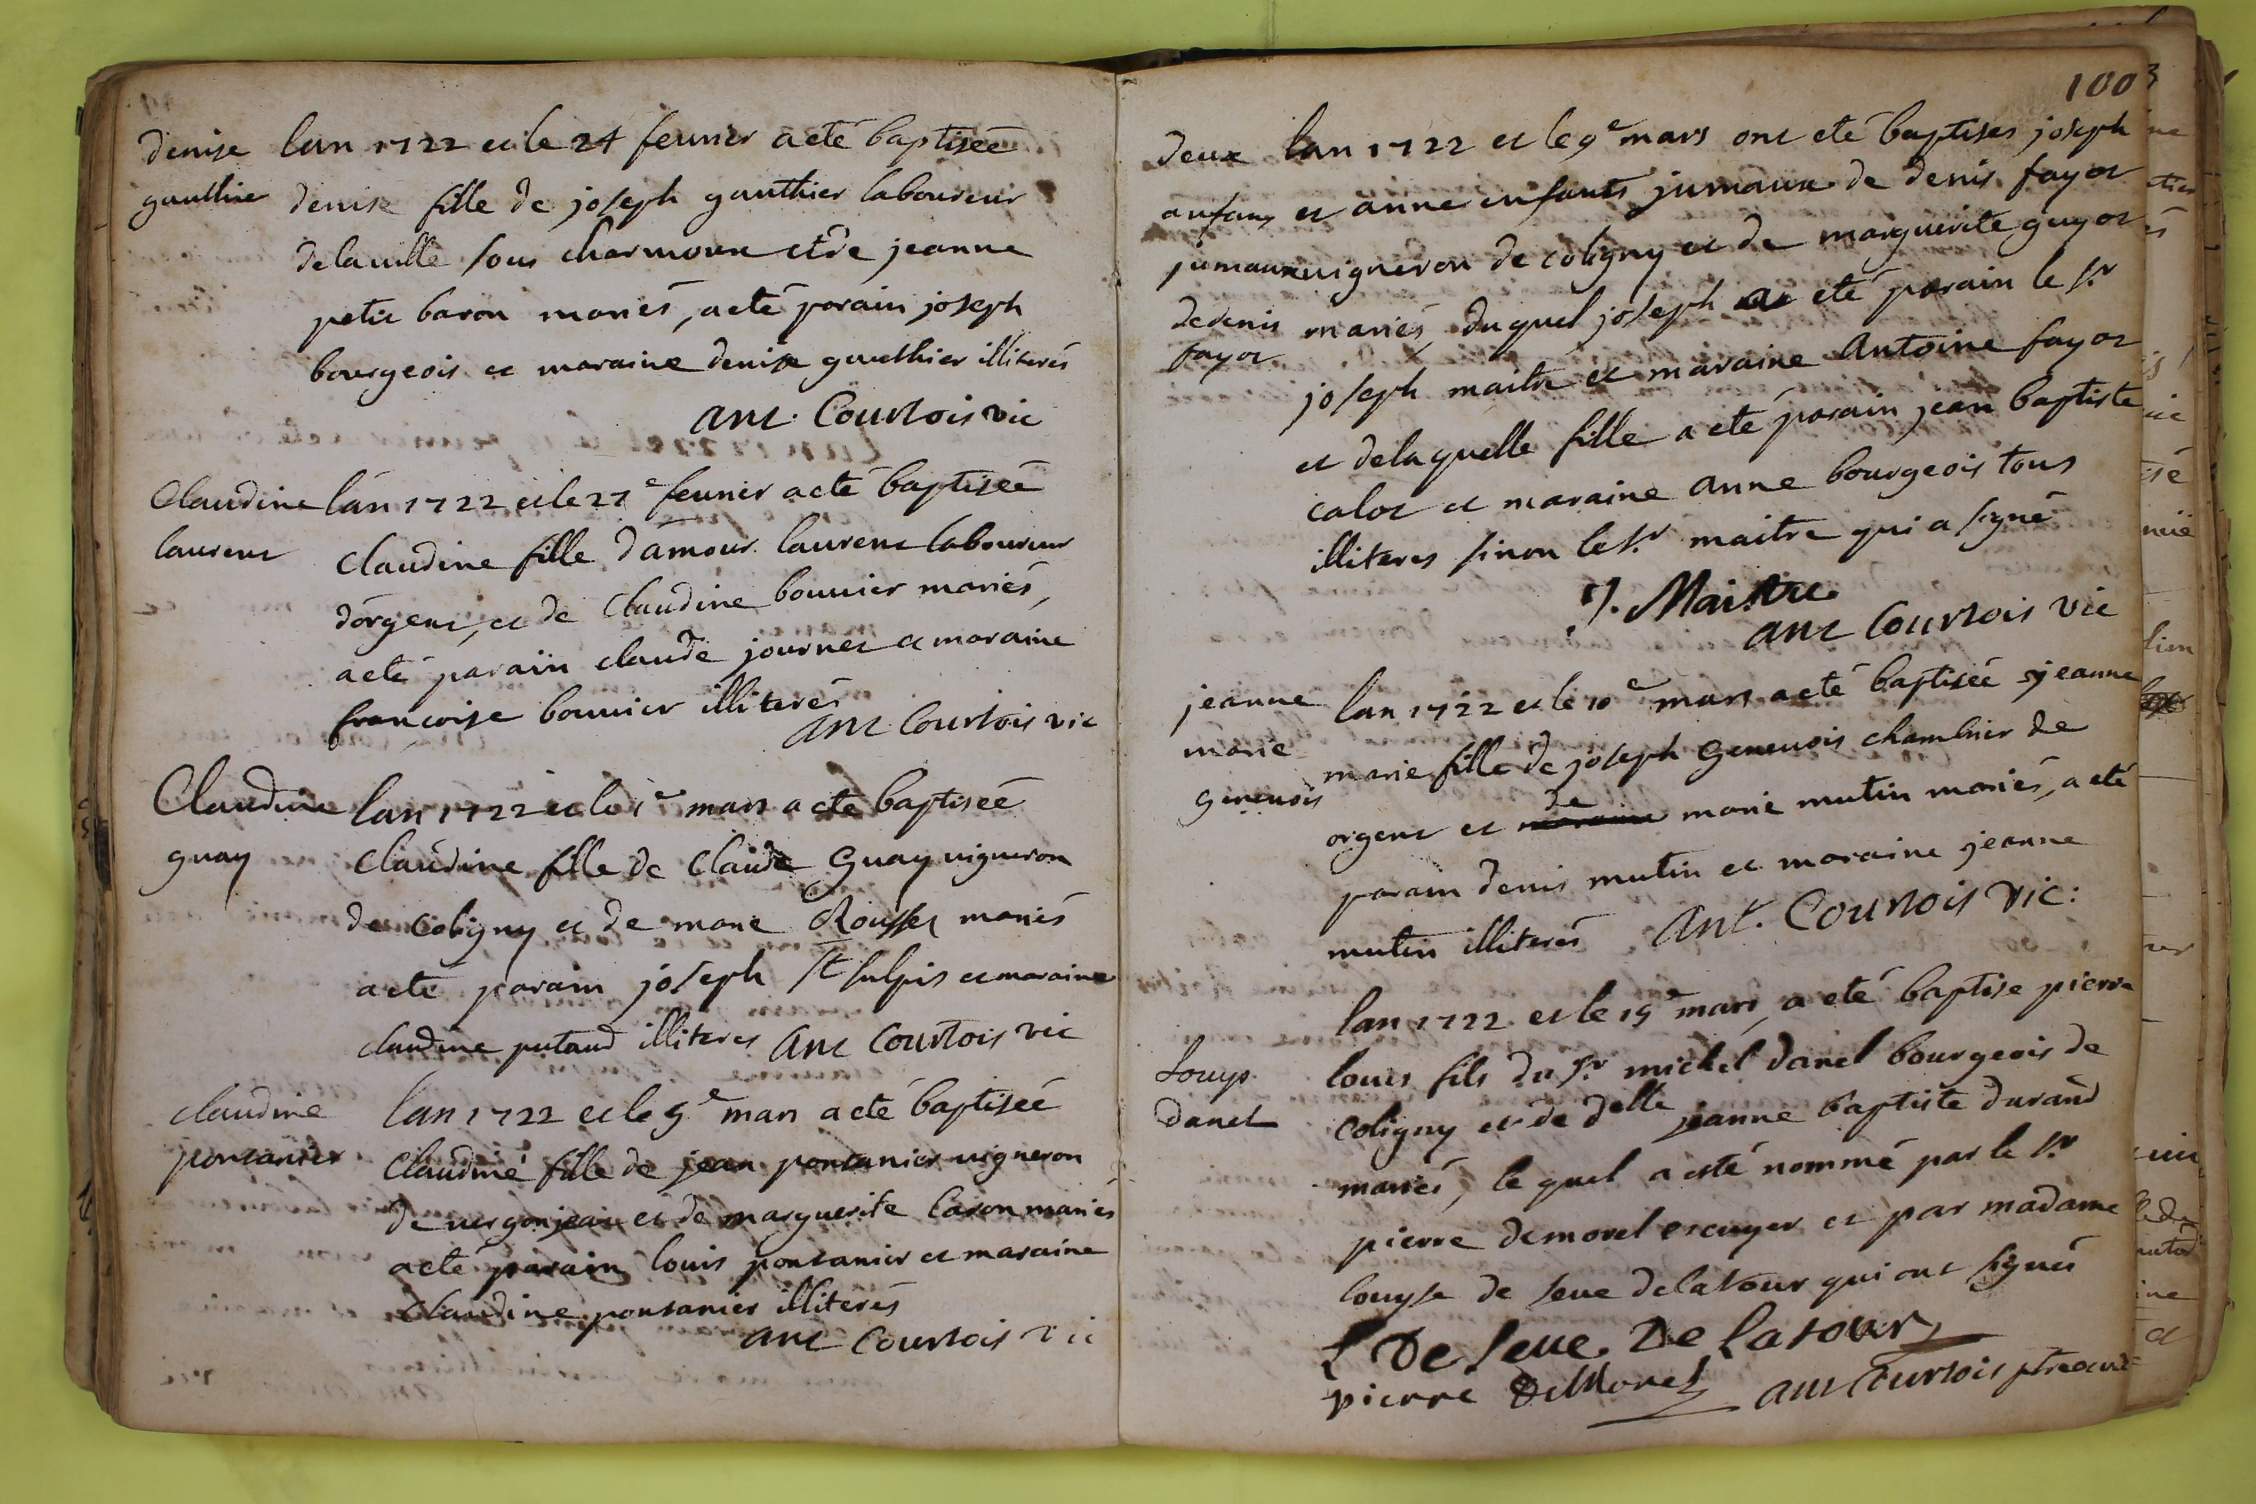 denise
gauthier
lan 1722 et le 24 feurier a eté baptiseé
denise fille de joseph gauthier laboureur
delauille sous charmoux et de jeanne
petit baron mariés, a eté parain joseph
bourgeois et maraine denise gauthier illiterés
ant. Courtois vic
Claudine
laurent
lan 1722 et le 27e feurier a eté baptiseé
claudine fille d'amour laurent laboureur
dorgent, et de Claudine bouuier mariés,
a eté parain claude journet et maraine
françoise bouuier illiterés
ant Courtois vic
Claudine
guay
lan 1722 et le 1e mars a eté baptiseé
claudine fille de Claude Guay uigneron
de coligny et de marie Rousset mariés
a eté parain joseph St sulpis et maraine
claudine putaud illiteres ant Courtois vic
claudine
pontanier
lan 1722 et le 5e mars a eté baptiseé
claudine fille de jean pontanier uigneron
de uergonjean et de marguerite Caron mariés
a eté parain louis pontanier et maraine
Claudine pontanier illiterés
ant Courtois vic
100
deux
anfans
jumaux
de denis
fayot
lan 1722 et le 9e mars ont eté baptises joseph
et anne enfants jumaux de denis fayot
uigneron de coligny et de marguerite guyot
mariés, duquel joseph a eté parain le sr
joseph maitre et maraine Antoine fayot
et delaquelle fille a eté parain jean baptiste
calot et maraine anne bourgeois tous
illiteres sinon le sr maitre qui a signé
J. Maistre
ant Courtois vic
jeanne
marie
geneuois
lan 1722 et le 10e mars a eté baptiseé jeanne
marie fille de joseph Geneuois chambrier de
orgent et de marie mutin mariés, a eté
parain denis mutin et maraine jeanne
mutin illiterés Ant. Courtois vic:
Louys
danet
lan 1722 et le 15e mars, a eté baptise pierre
louis fils du sr michel danet bourgeois de
coligny et de delle jeanne baptiste durand
mariés, le quel a esté nommé par le sr
pierre demorel escuyer et par madame
louyse de seue delatour qui ont signés
L De Seue De Latour
pierre DeMorel ant Courtois ptre curé